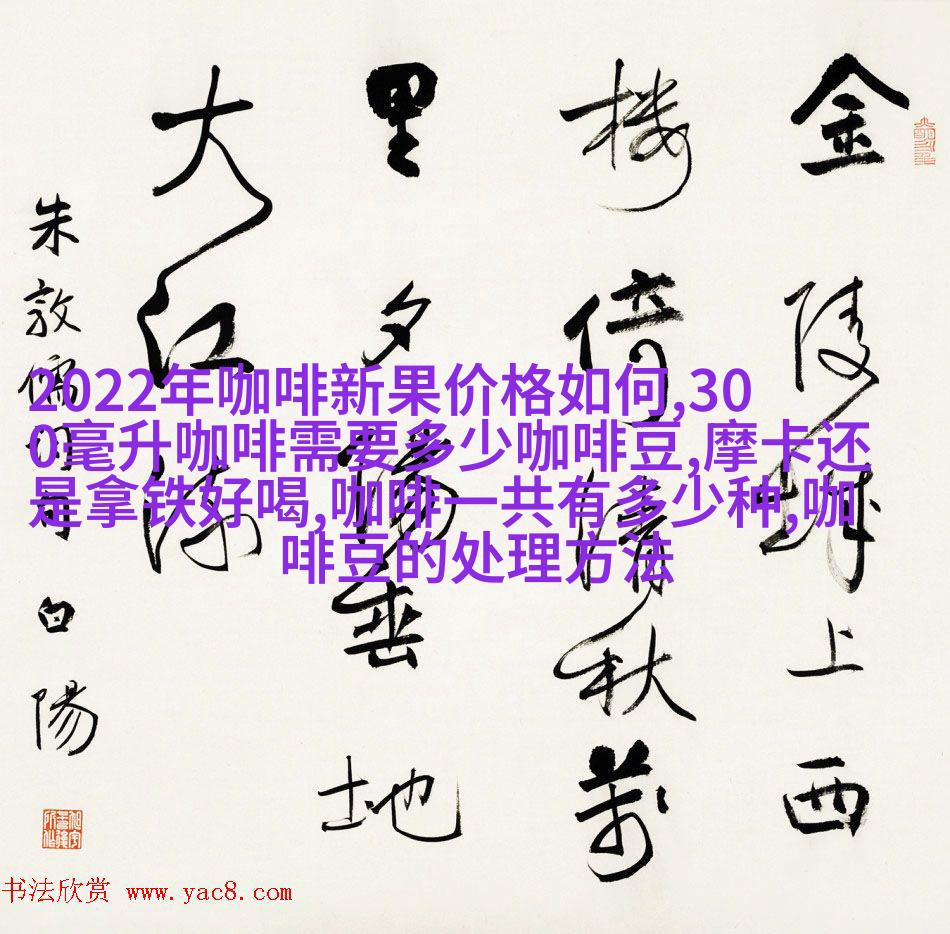 金陵城上西
楼倚清秋萬
里夕陽垂地
大江流
朱敦儒词句 白陽
2022年咖啡新果价格如何,30
0毫升咖啡需要多少咖啡豆,摩卡还
是拿铁好喝,咖啡一共有多少种,咖
啡豆的处理方法
书法欣赏 www.yac8.com